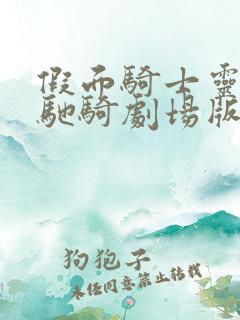 假面騎士靈
馳騎劇場版
狗狍子
未经同意禁止转载